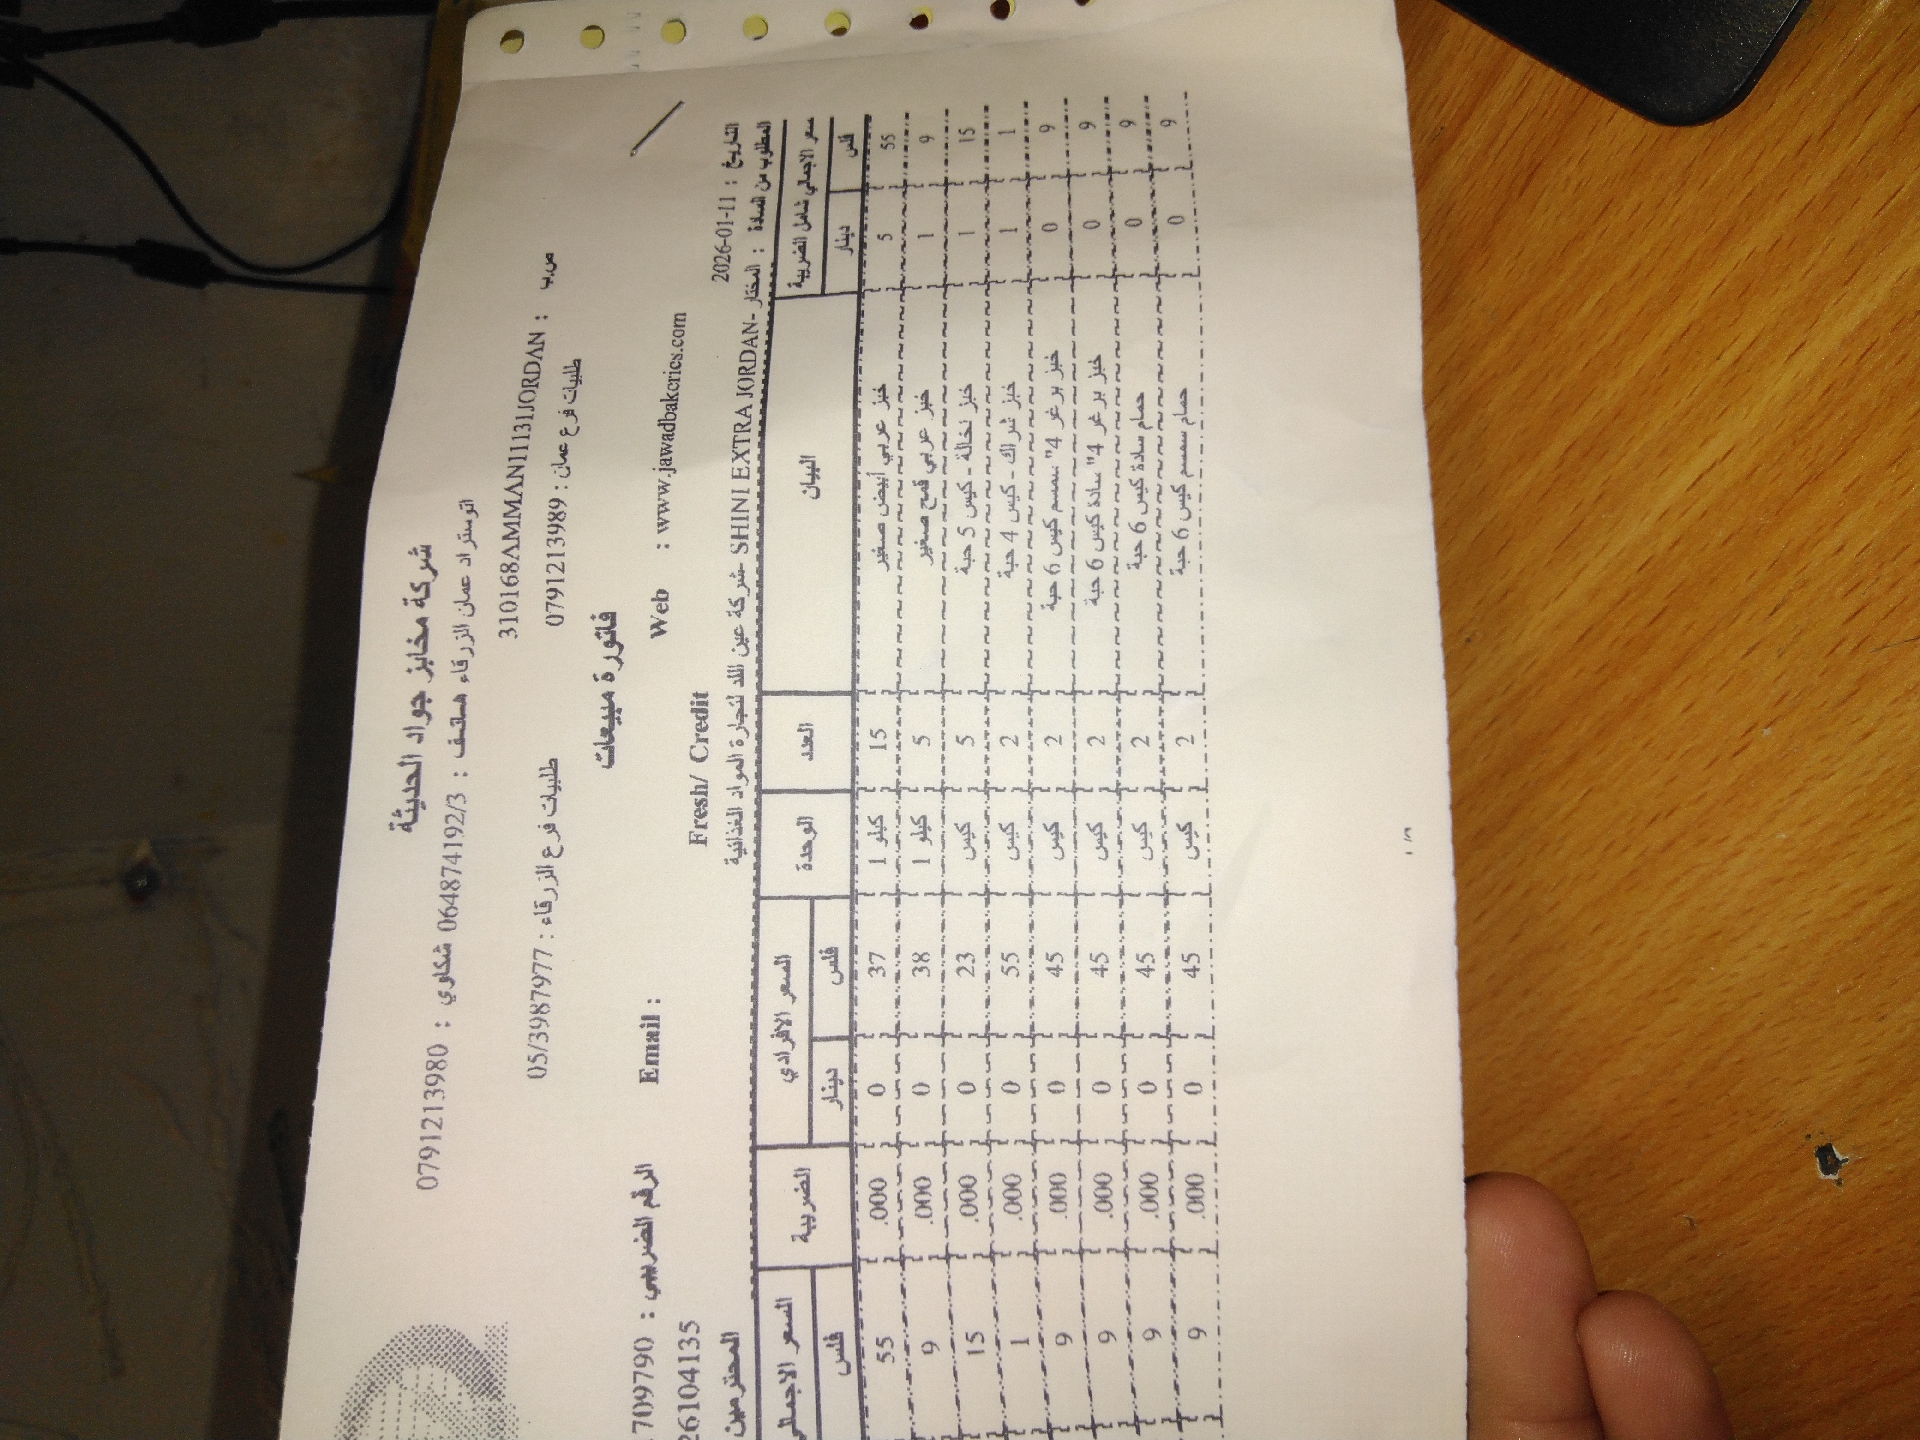 شركة مخابز جواد الحديثة
اتوستراد عمان الزرقاء هاتف : 064874192/3 شكاوي : 0791213980
ص.ب : 310168AMMAN11131JORDAN
طلبيات فرع عمان : 0791213989 طلبيات فرع الزرقاء : 05/3987977
فاتورة مبيعات
Web : www.jawadbakeries.com Email : الرقم الضريبي : 1709790
Fresh/ Credit 26104135
التاريخ : 2026-01-11
المطلوب من السادة : المختار -SHINI EXTRA JORDAN -شركة عين اللد لتجارة المواد الغذائية المحترمين
سعر الاجمالي شامل الضريبة البيان العدد الوحدة السعر الافرادي الضريبة السعر الاجمالي
فلس دينار فلس دينار فلس
55 5 خبز عربي أبيض صغير 15 كيلو 1 37 0 .000 55
9 1 خبز عربي قمح صغير 5 كيلو 1 38 0 .000 9
15 1 خبز نخالة - كيس 5 حبة 5 كيس 23 0 .000 15
1 1 خبز شراك - كيس 4 حبة 2 كيس 55 0 .000 1
9 0 خبز برغر 4" سمسم كيس 6 حبة 2 كيس 45 0 .000 9
9 0 خبز برغر 4" سادة كيس 6 حبة 2 كيس 45 0 .000 9
9 0 حمام سادة كيس 6 حبة 2 كيس 45 0 .000 9
9 0 حمام سمسم كيس 6 حبة 2 كيس 45 0 .000 9